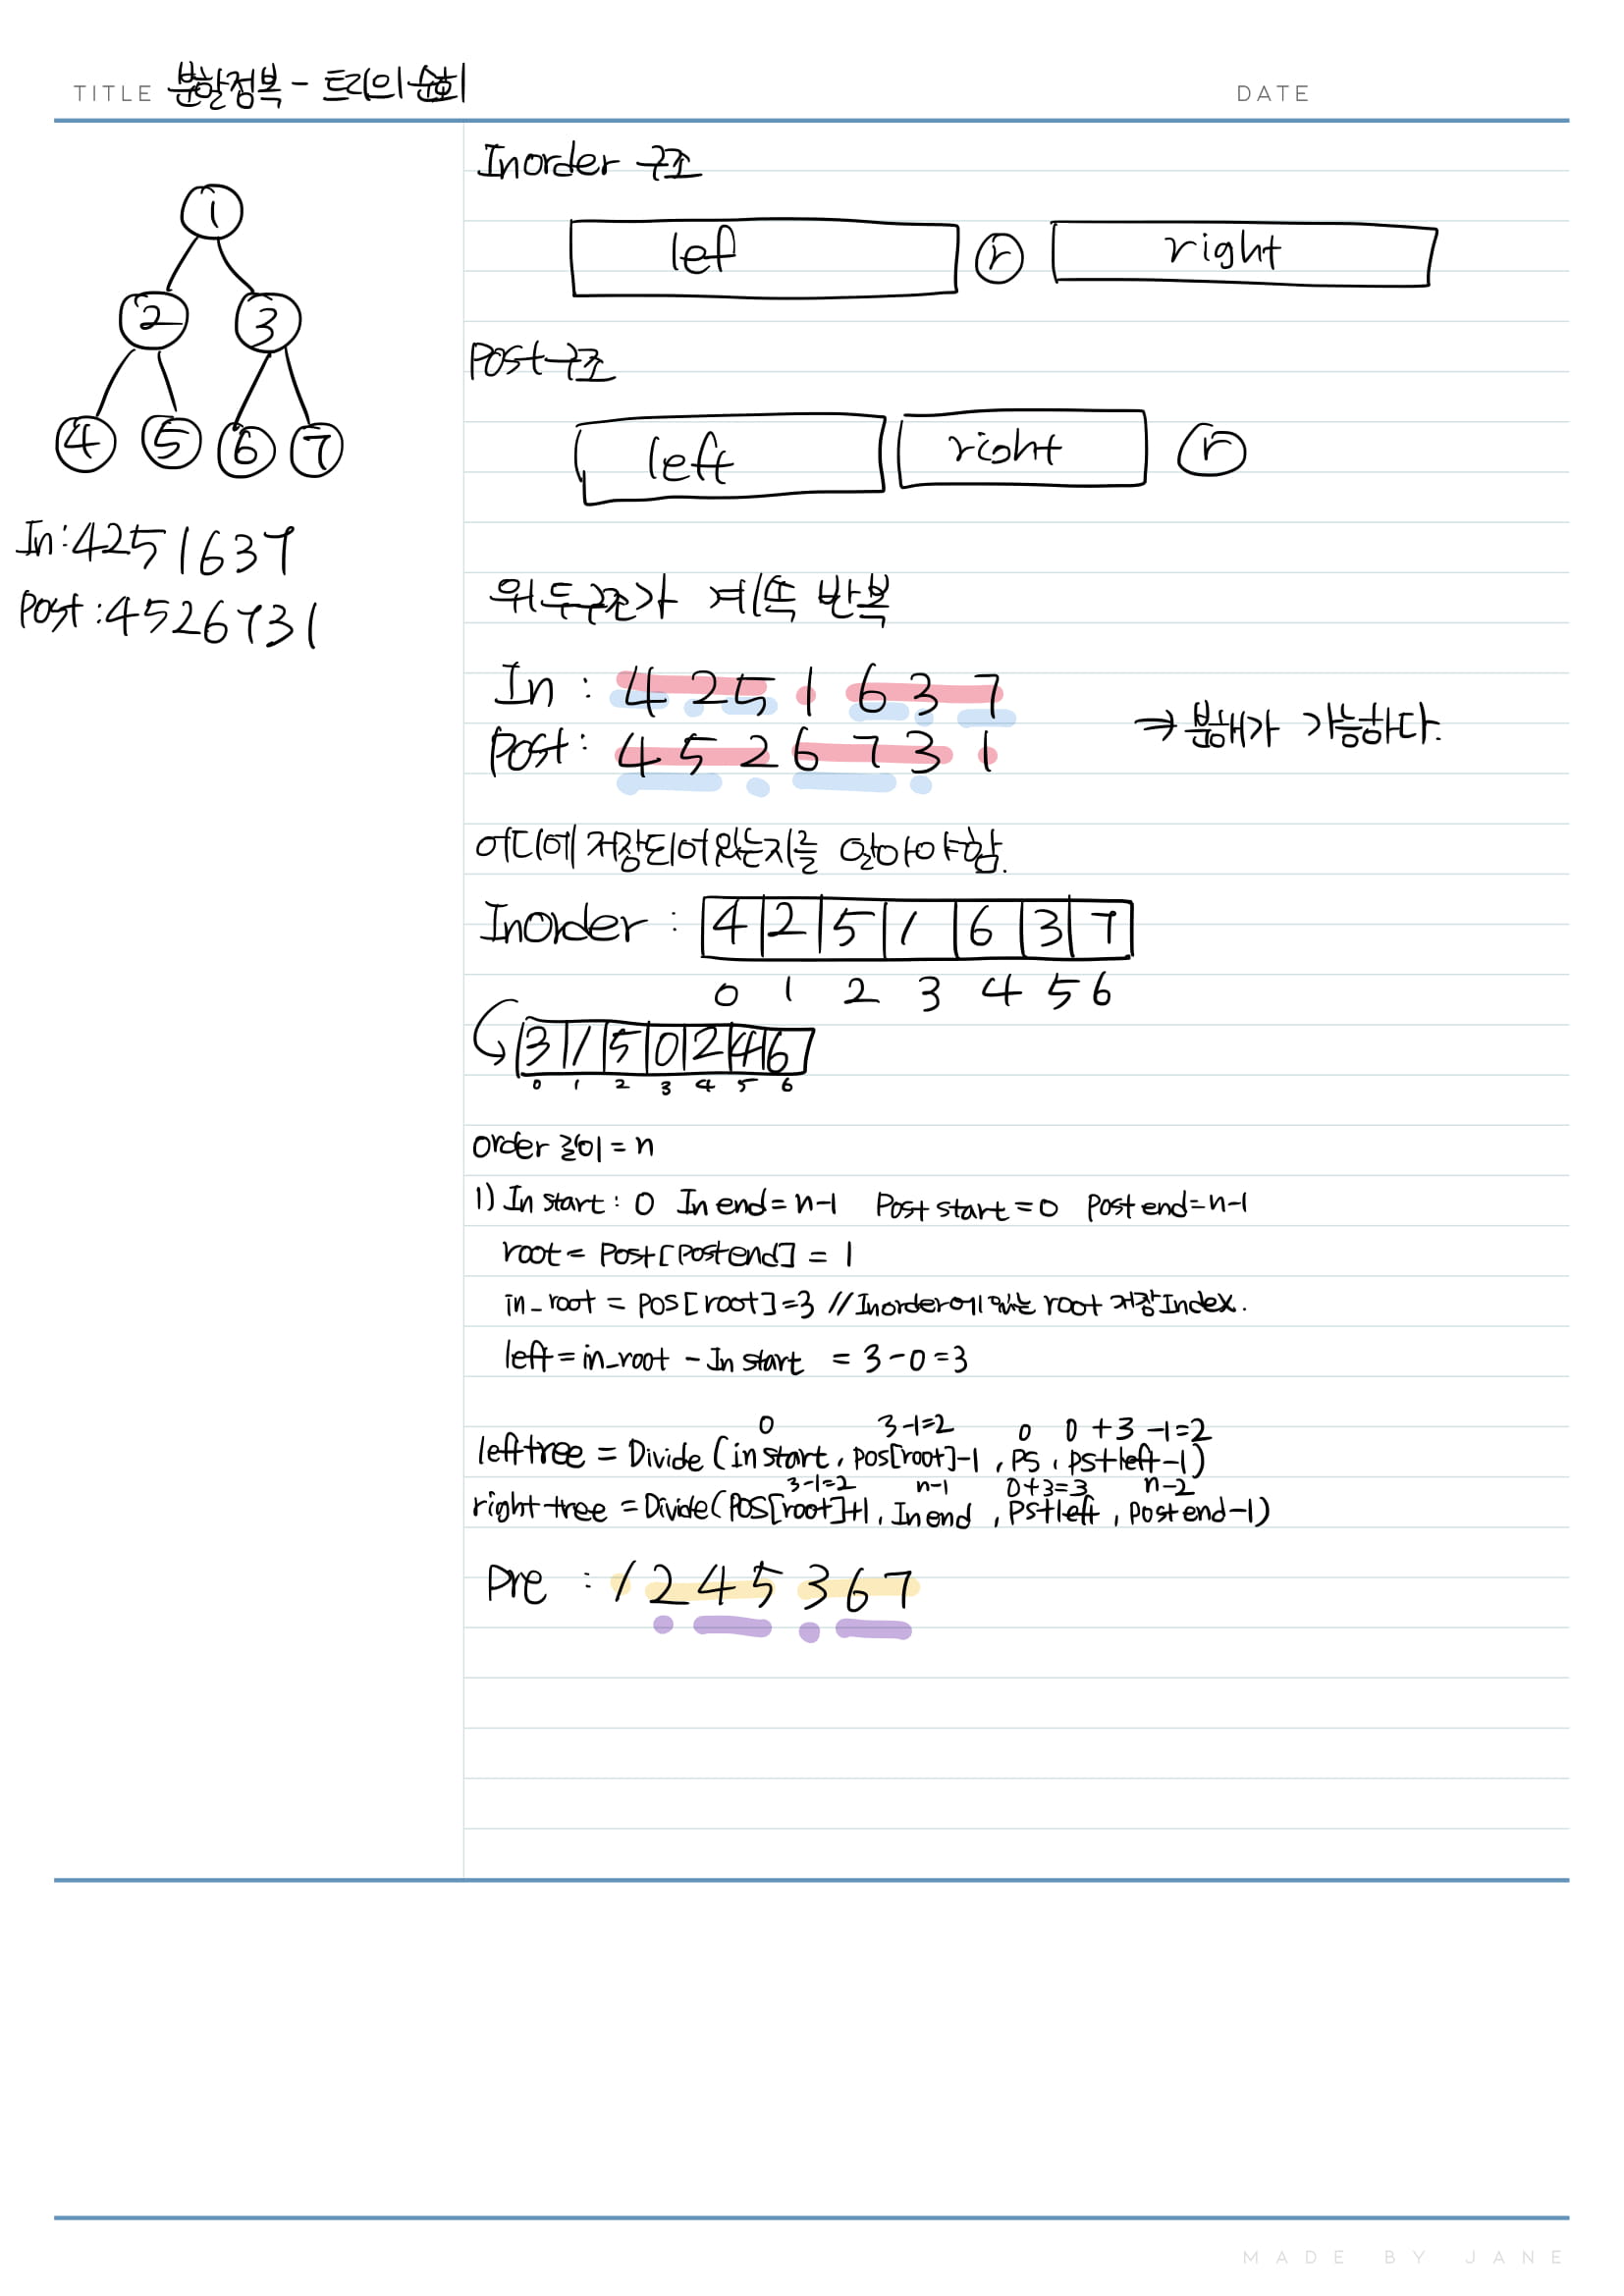 TITLE 분할정복 - 트리의 순회
DATE
1
2 3
4 5 6 7
In: 4251637
Post: 4526731
Inorder 구조
lef r right
Post구조
left right r
위 두구조가 계속 반복
In : 4 2 5 1 6 3 7
Post: 4 5 2 6 7 3 1
→ 분해가 가능하다.
어디에 저장되어있는지를 알아야함.
Inorder : 4 2 5 1 6 3 7
0 1 2 3 4 5 6
3 1 5 0 2 4 6
0 1 2 3 4 5 6
order 길이 = n
1) In start : 0 In end = n-1 Post start = 0 Post end = n-1
root = Post[Postend] = 1
in_root = Pos[root] = 3 // Inorder에 있는 root 저장 Index.
left = in_root - In start = 3 - 0 = 3
0 3-1=2 0 0+3-1=2
left tree = Divide (in start, pos[root]-1, PS, ps+left-1)
3-1=2 n-1 0+3=3 n-2
right tree = Divide(Pos[root]+1, In end, PS+left, postend-1)
Pre : 1 2 4 5 3 6 7
MADE BY JANE